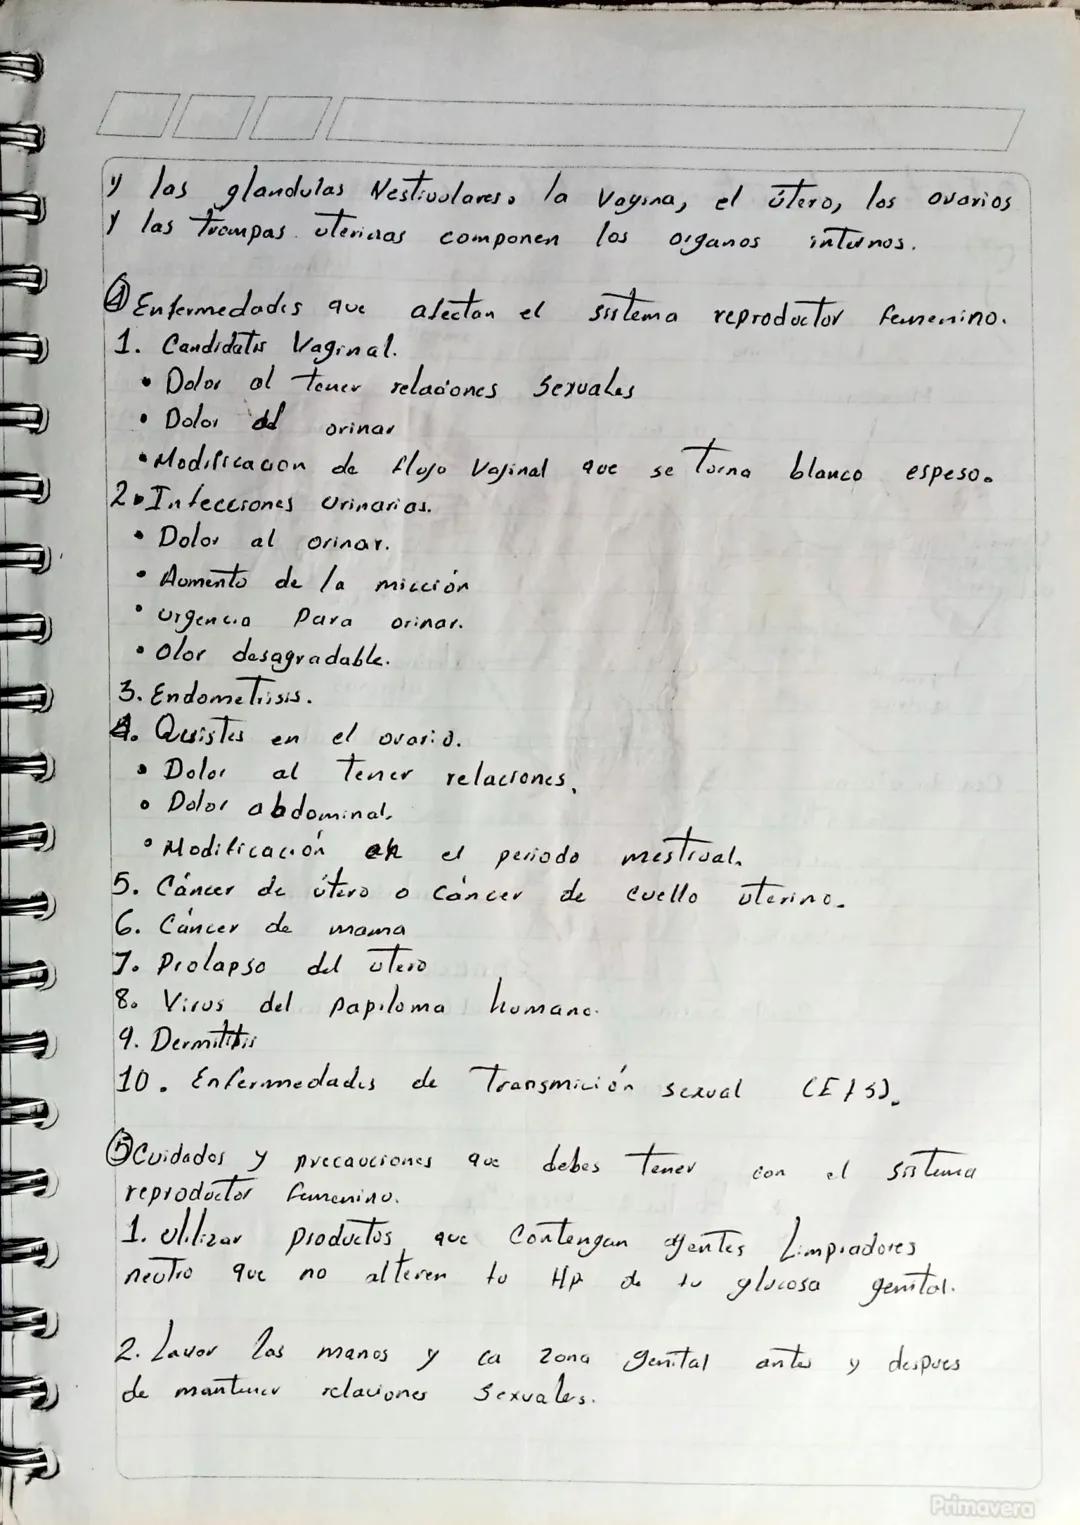 y las glandulas Nestivolares. la Vagina, el útero, los ovarios
y las trompas uterinas componen los organos internos.
④ Enfermedades que afectan el sistema reproductor femenino.
1. Candidatis Vaginal.
• Dolor al tener relaciones sexuales
• Dolor al orinar
• Modificacion de flujo Vajinal que se torna blanco espeso.
2. Infecciones urinarias.
• Dolor al orinar.
• Aumento de la micción
• urgencia para orinar.
• Olor desagradable.
3. Endometrisis.
4. Quistes en el ovario.
• Dolor al tener relaciones.
• Dolor abdominal.
• Modificación en el periodo mestrual.
5. Cáncer de útero o cáncer de cuello uterino.
6. Cáncer de mama
7. Prolapso del utero
8. Virus del papiloma humano.
9. Dermititis
10. Enfermedades de Transmición sexual (ETS).
⑤ Cuidados y precauciones que debes tener con el sistema
reproductor femenino.
1. utilizar productos que contengan agentes limpiadores
neutro que no alteren tu HP de tu glucosa genital.
2. Lavar las manos y la zona genital antes y despues
de mantener relaciones sexuales.
Primavera